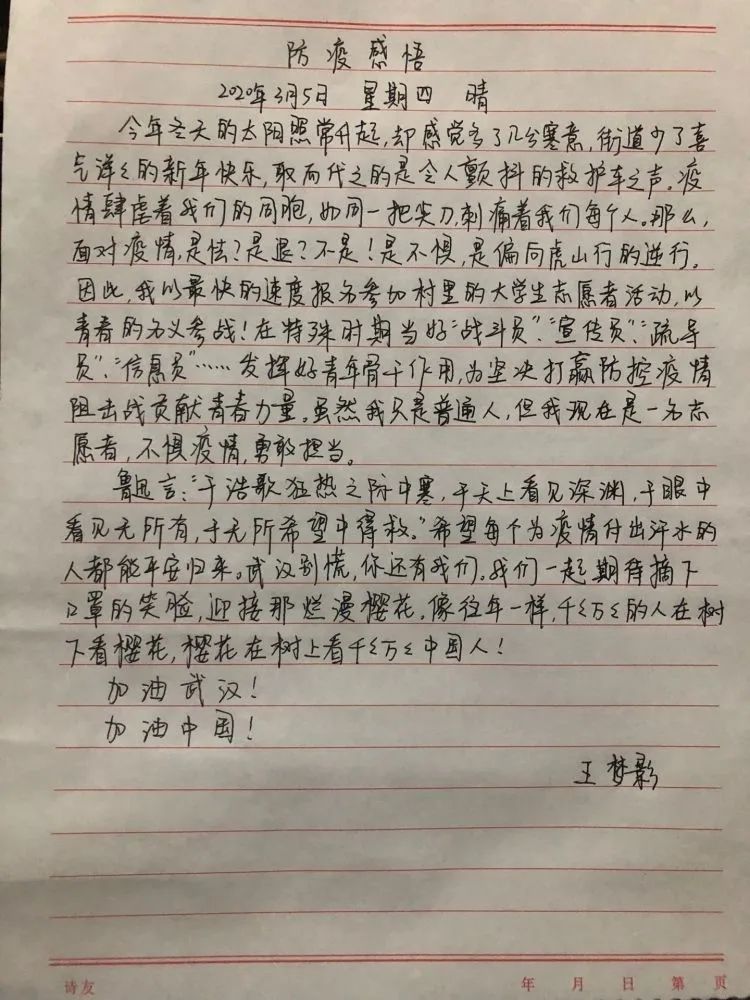 防疫感悟
2020年3月5日 星期四 晴
今年冬天的太阳照常升起,却感觉多了几分寒意,街道少了喜
气洋々的新年快乐,取而代之的是令人颤抖的救护车之声。疫
情肆虐着我们的同胞,如同一把尖刀,刺痛着我们每个人。那么,
面对疫情,是怯?是退?不是!是不惧,是偏向虎山行的逆行。
因此,我以最快的速度报名参加村里的大学生志愿者活动,以
青春的名义参战!在特殊时期当好“战斗员”、“宣传员”、“疏导
员”、“信息员”……发挥好青年骨干作用,为坚决打赢防控疫情
阻击战贡献青春力量。虽然我只是普通人,但我现在是一名志
愿者,不惧疫情,勇敢担当。
鲁迅言:“于浩歌狂热之际中寒,于天上看见深渊,于眼中
看见无所有,于无所希望中得救。”希望每个为疫情付出汗水的
人都能平安归来。武汉别慌,你还有我们。我们一起期待摘下
口罩的笑脸,迎接那烂漫樱花。像往年一样,千々万々的人在树
下看樱花,樱花在树上看千々万々中国人!
加油武汉!
加油中国!
王梦影
诗友 年 月 日 第 页